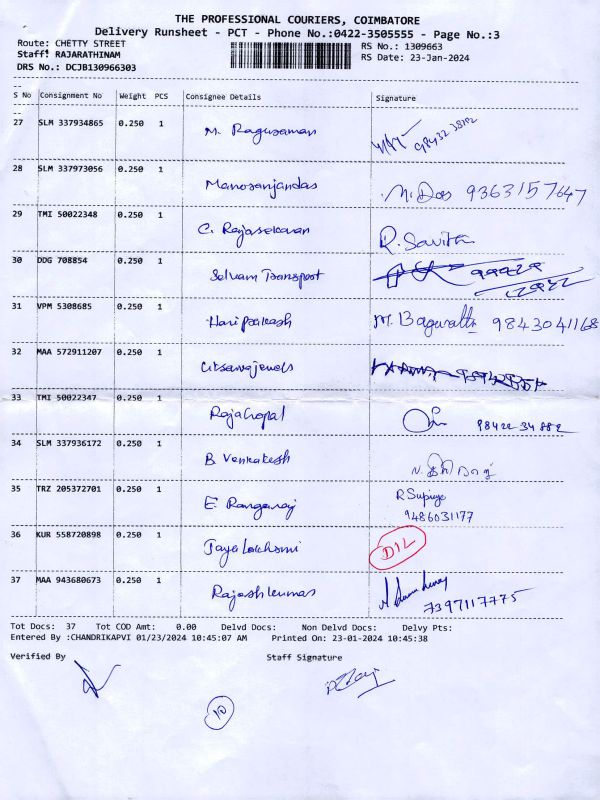 THE PROFESSIONAL COURIERS, COIMBATORE
Delivery Runsheet - PCT - Phone No.:0422-3505555 - Page No.:3
Route: CHETTY STREET
RS No.: 1309663
Staff: RAJARATHINAM
RS Date: 23-Jan-2024
DRS No.: DCJB130966303
S No Consignment No Weight PCS Consignee Details Signature
27 SLM 337934865 0.250 1 M. Ragusaman 98432 38202
28 SLM 337973056 0.250 1 Manoranjandas M. Das 9363157647
29 TMI 50022348 0.250 1 C. Rajasekaran R. Savitha
30 DDG 708854 0.250 1 Selvam Transport
31 VPM 5308685 0.250 1 Hariprakash M. Bagerath 9843041168
32 MAA 572911207 0.250 1
33 TMI 50022347 0.250 1 RajaGopal 98422 34882
34 SLM 337936172 0.250 1 B Venkatesh
35 TRZ 205372701 0.250 1 E. Rangaraj R Supiya
9486031177
36 KUR 558720898 0.250 1 Jaya Lakhsmi D/L
37 MAA 943680673 0.250 1 Rajeshkumar
7397117775
Tot Docs: 37 Tot COD Amt: 0.00 Delvd Docs: Non Delvd Docs: Delvy Pts:
Entered By :CHANDRIKAPVI 01/23/2024 10:45:07 AM Printed On: 23-01-2024 10:45:38
Verified By Staff Signature
10